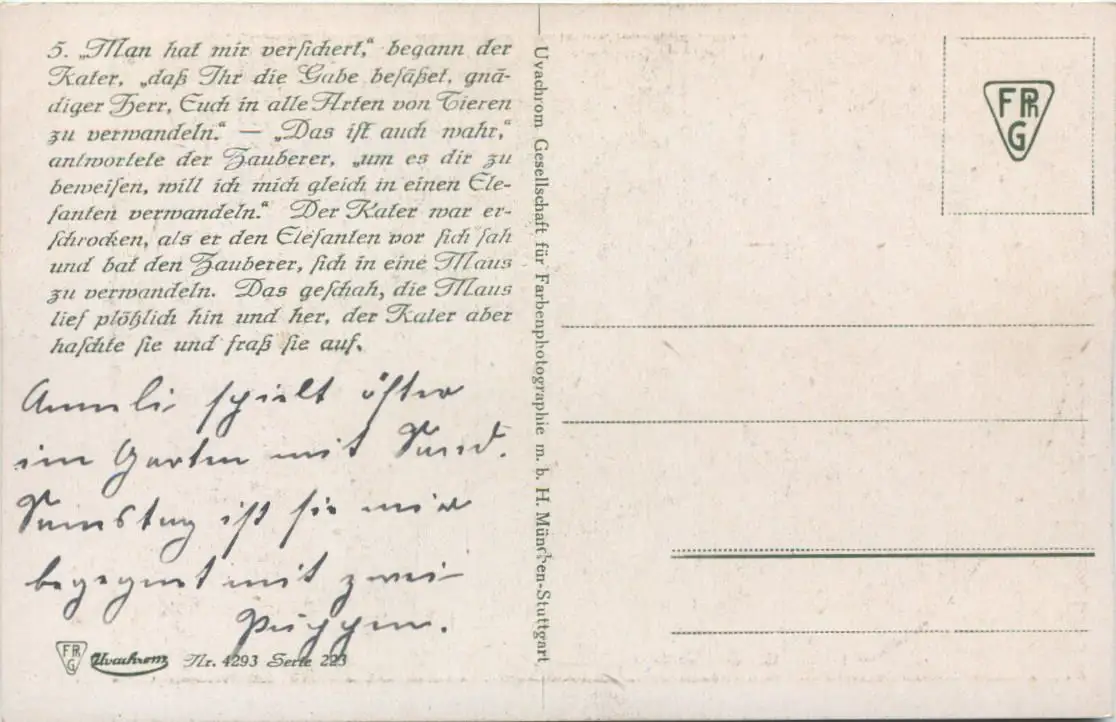 5. „Man hat mir versichert,“ begann der
Kater, „daß Ihr die Gabe besäßet, gnä-
diger Herr, Euch in alle Arten von Tieren
zu verwandeln.“ — „Das ist auch wahr,“
antwortete der Zauberer, „um es dir zu
beweisen, will ich mich gleich in einen Ele-
fanten verwandeln.“ Der Kater war er-
schrocken, als er den Elefanten vor sich sah
und bat den Zauberer, sich in eine Maus
zu verwandeln. Das geschah, die Maus
lief plötzlich hin und her, der Kater aber
haschte sie und fraß sie auf.
Anneli spielt öfter
im Garten mit Sand.
Samstag ist sie mir
begegnet mit zwei
Puppen.
FPh
G
Uvachrom Nr. 4293 Serie 223
Uvachrom Gesellschaft für Farbenphotographie m. b. H. München-Stuttgart
FPh
G